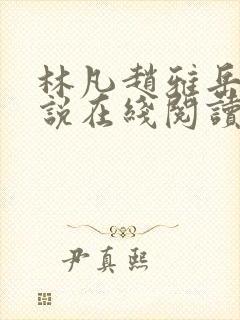 林凡趙雅岳
說在綫閱讀
尹真熙